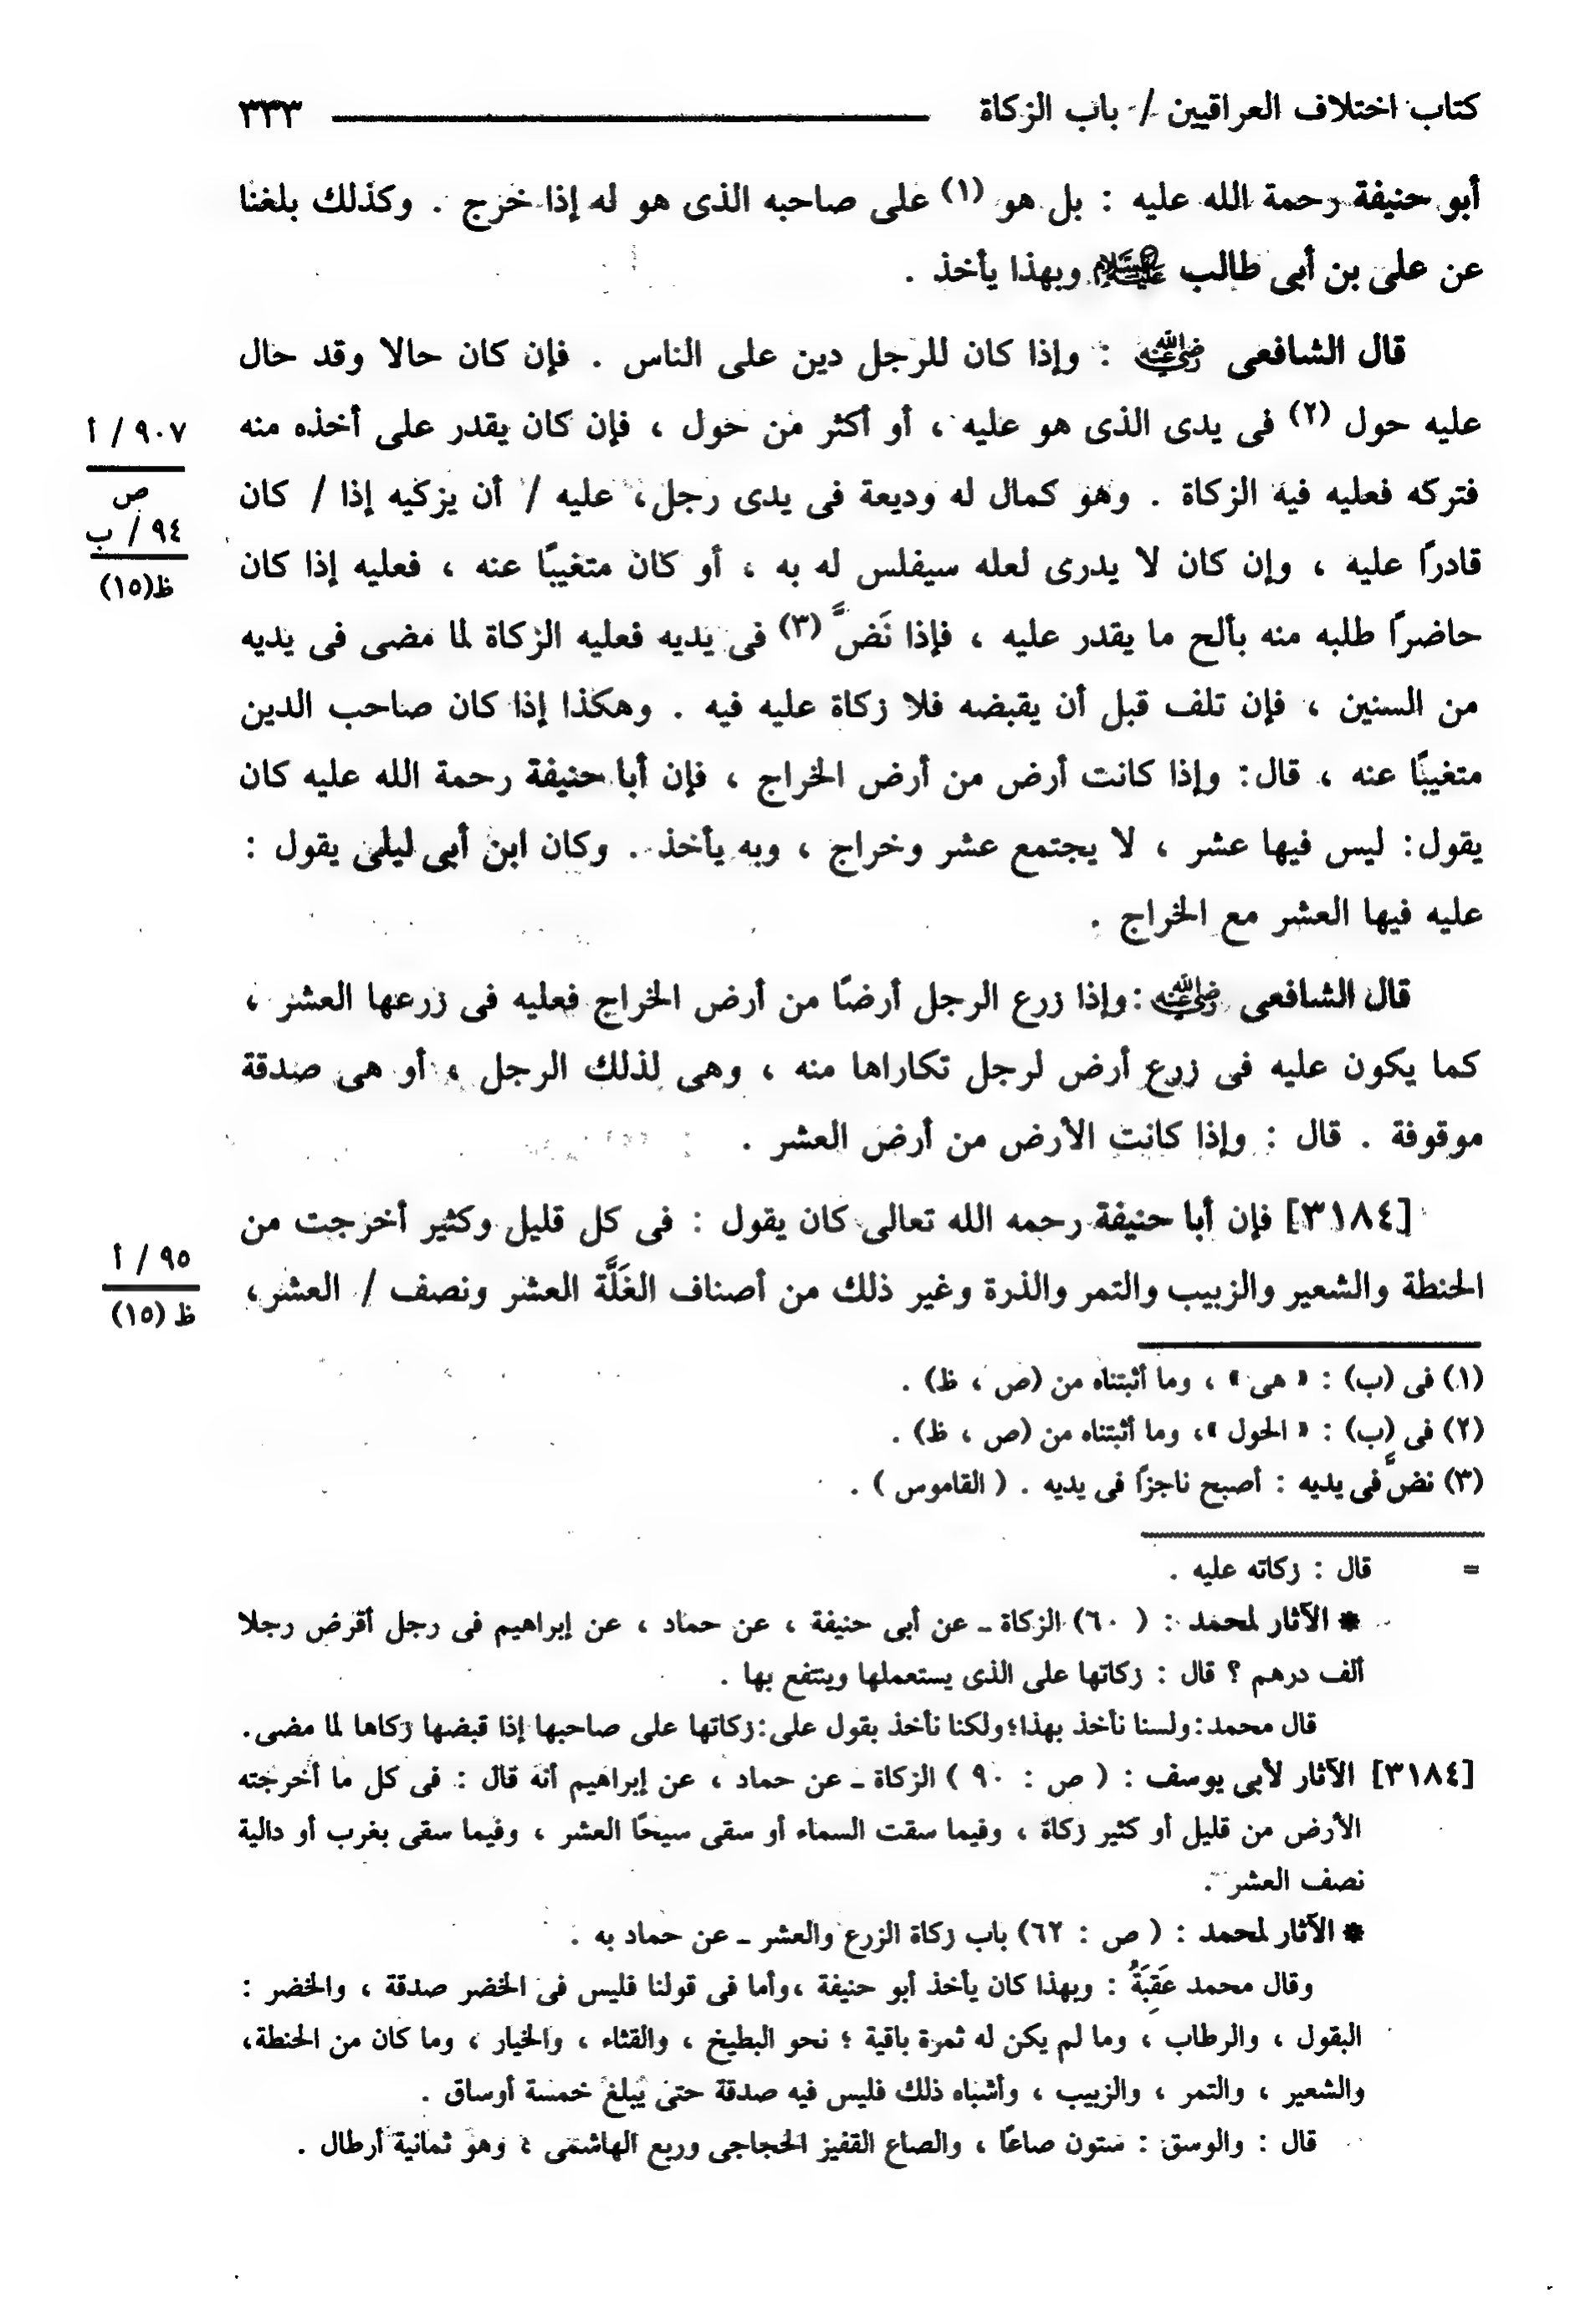 كتاب اختلاف العراقيين / باب الزكاة ٣٣٣
أبو حنيفة رحمة الله عليه : بل هو (١) على صاحبه الذى هو له إذا خرج . وكذلك بلغنا
عن على بن أبى طالب عليه السلام وبهذا يأخذ .
قال الشافعى رضي الله عنه : وإذا كان للرجل دين على الناس . فإن كان حالا وقد حال
عليه حول (٢) فى يدى الذى هو عليه ، أو أكثر من حول ، فإن كان يقدر على أخذه منه
٩٠٧ / أ
فتركه فعليه فيه الزكاة . وهو كمال له وديعة فى يدى رجل، عليه / أن يزكيه إذا / كان
ص
٩٤ / ب
قادرًا عليه ، وإن كان لا يدرى لعله سيفلس له به ، أو كان متغيبًا عنه ، فعليه إذا كان
ظ(١٥)
حاضرًا طلبه منه بألح ما يقدر عليه ، فإذا نَضَّ (٣) فى يديه فعليه الزكاة لما مضى فى يديه
من السنين ، فإن تلف قبل أن يقبضه فلا زكاة عليه فيه . وهكذا إذا كان صاحب الدين
متغيبًا عنه ، قال: وإذا كانت أرض من أرض الخراج ، فإن أبا حنيفة رحمة الله عليه كان
يقول: ليس فيها عشر ، لا يجتمع عشر وخراج ، وبه يأخذ . وكان ابن أبى ليلى يقول :
عليه فيها العشر مع الخراج .
قال الشافعى رضي الله عنه :وإذا زرع الرجل أرضًا من أرض الخراج فعليه فى زرعها العشر ،
كما يكون عليه فى زرع أرض لرجل تكاراها منه ، وهى لذلك الرجل ، أو هى صدقة
موقوفة . قال : وإذا كانت الأرض من أرض العشر .
[٣١٨٤] فإن أبا حنيفة رحمه الله تعالى كان يقول : فى كل قليل وكثير أخرجت من
٩٥ / أ
الحنطة والشعير والزبيب والتمر والذرة وغير ذلك من أصناف الغَلَّة العشر ونصف / العشر،
ظ (١٥)
(١) فى (ب) : « هى » ، وما أثبتناه من (ص ، ظ) .
(٢) فى (ب) : « الحول »، وما أثبتناه من (ص ، ظ) .
(٣) نضَّ فى يديه : أصبح ناجزًا فى يديه . ( القاموس ) .
= قال : زكاته عليه .
* الآثار لمحمد : ( ٦٠) الزكاة ـ عن أبى حنيفة ، عن حماد ، عن إبراهيم فى رجل أقرض رجلا
ألف درهم ؟ قال : زكاتها على الذى يستعملها وينتفع بها .
قال محمد:ولسنا نأخذ بهذا؛ولكنا نأخذ بقول على:زكاتها على صاحبها إذا قبضها زكاها لما مضى.
[٣١٨٤] الآثار لأبى يوسف : ( ص : ٩٠ ) الزكاة ـ عن حماد ، عن إبراهيم أنه قال : فى كل ما أخرجته
الأرض من قليل أو كثير زكاة ، وفيما سقت السماء أو سقى سيحًا العشر ، وفيما سقى بغرب أو دالية
نصف العشر .
* الآثار لمحمد : ( ص : ٦٢) باب زكاة الزرع والعشر ـ عن حماد به .
وقال محمد عَقِبَهُ : وبهذا كان يأخذ أبو حنيفة ،وأما فى قولنا فليس فى الخضر صدقة ، والخضر :
البقول ، والرطاب ، وما لم يكن له ثمرة باقية ؛ نحو البطيخ ، والقثاء ، والخيار ، وما كان من الحنطة،
والشعير ، والتمر ، والزبيب ، وأشباه ذلك فليس فيه صدقة حتى يبلغ خمسة أوساق .
قال : والوسق : ستون صاعًا ، والصاع القفيز الحجاجى وربع الهاشمى ؛ وهو ثمانية أرطال .